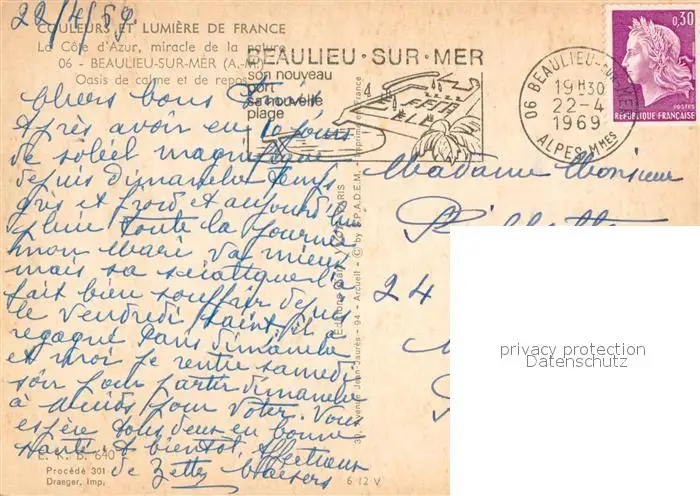 22/4/69
COULEURS ET LUMIÈRE DE FRANCE
La Côte d'Azur, miracle de la nature
06 - BEAULIEU-SUR-MER (A.-M.)
Oasis de calme et de repos
BEAULIEU · SUR · MER
son nouveau
port
sa nouvelle
plage
06 BEAULIEU-SUR-MER
19H30
22-4
1969
ALPES-MMES
0,30
POSTES
RÉPUBLIQUE FRANÇAISE
chers bons Amis
Après avoir eu 10 jours
de soleil magnifique
depuis dimanche temps
gris et froid et aujourd'hui
pluie toute la journée
mon mari va mieux
mais sa sciatique l'a
fait bien souffrir depuis
le Vendredi Saint, il a
regagné Paris dimanche
et moi je rentre samedi
pour partir dimanche
à pour voter. Vous
espère tous deux en bonne
santé. à bientôt, affectueux
de Zetty baisers
Madame Monsieur
24
Editions d'art YVON, PARIS
30, Avenue Jean-Jaurès - 94 - Arcueil - © by S.P.A.D.E.M. - Imprimé en France
E. K. B. 640
Procédé 301
Draeger, Imp.
6 12 V
privacy protection
Datenschutz